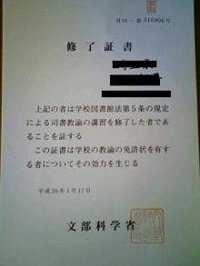 修了証書
上記の者は学校図書館法第5条の規定
による司書教諭の講習を修了した者であ
ることを証する
この証書は学校の教諭の免許状を有す
る者についてその効力を生じる
平成20年1月17日
文部科学省